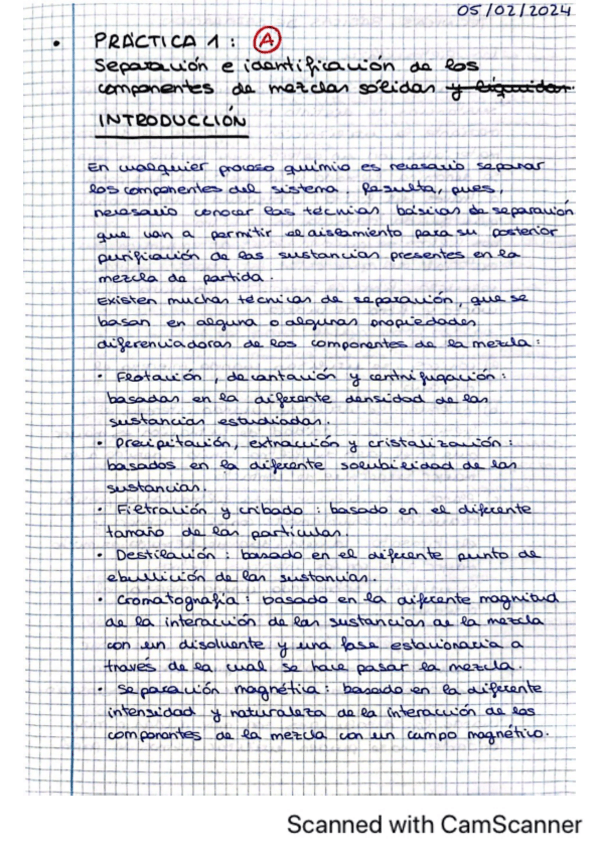 05/02/2024
• PRÁCTICA 1: A
Separación e identificación de los
componentes de mezclas sólidas y líquidas.
INTRODUCCIÓN
En cualquier proceso químico es necesario separar
los componentes del sistema. Resulta, pues,
necesario conocer las técnicas básicas de separación
que van a permitir el aislamiento para su posterior
purificación de las sustancias presentes en la
mezcla de partida.
Existen muchas técnicas de separación, que se
basan en alguna o algunas propiedades
diferenciadoras de los componentes de la mezcla:
• Flotación, decantación y centrifugación:
basadas en la diferente densidad de las
sustancias estudiadas.
• Precipitación, extracción y cristalización:
basados en la diferente solubilidad de las
sustancias.
• Filtración y cribado: basado en el diferente
tamaño de las partículas.
• Destilación: basado en el diferente punto de
ebullición de las sustancias.
• Cromatografía: basado en la diferente magnitud
de la interacción de las sustancias de la mezcla
con un disolvente y una fase estacionaria a
través de la cual se hace pasar la mezcla.
• Separación magnética: basado en la diferente
intensidad y naturaleza de la interacción de los
componentes de la mezcla con un campo magnético.
Scanned with CamScanner